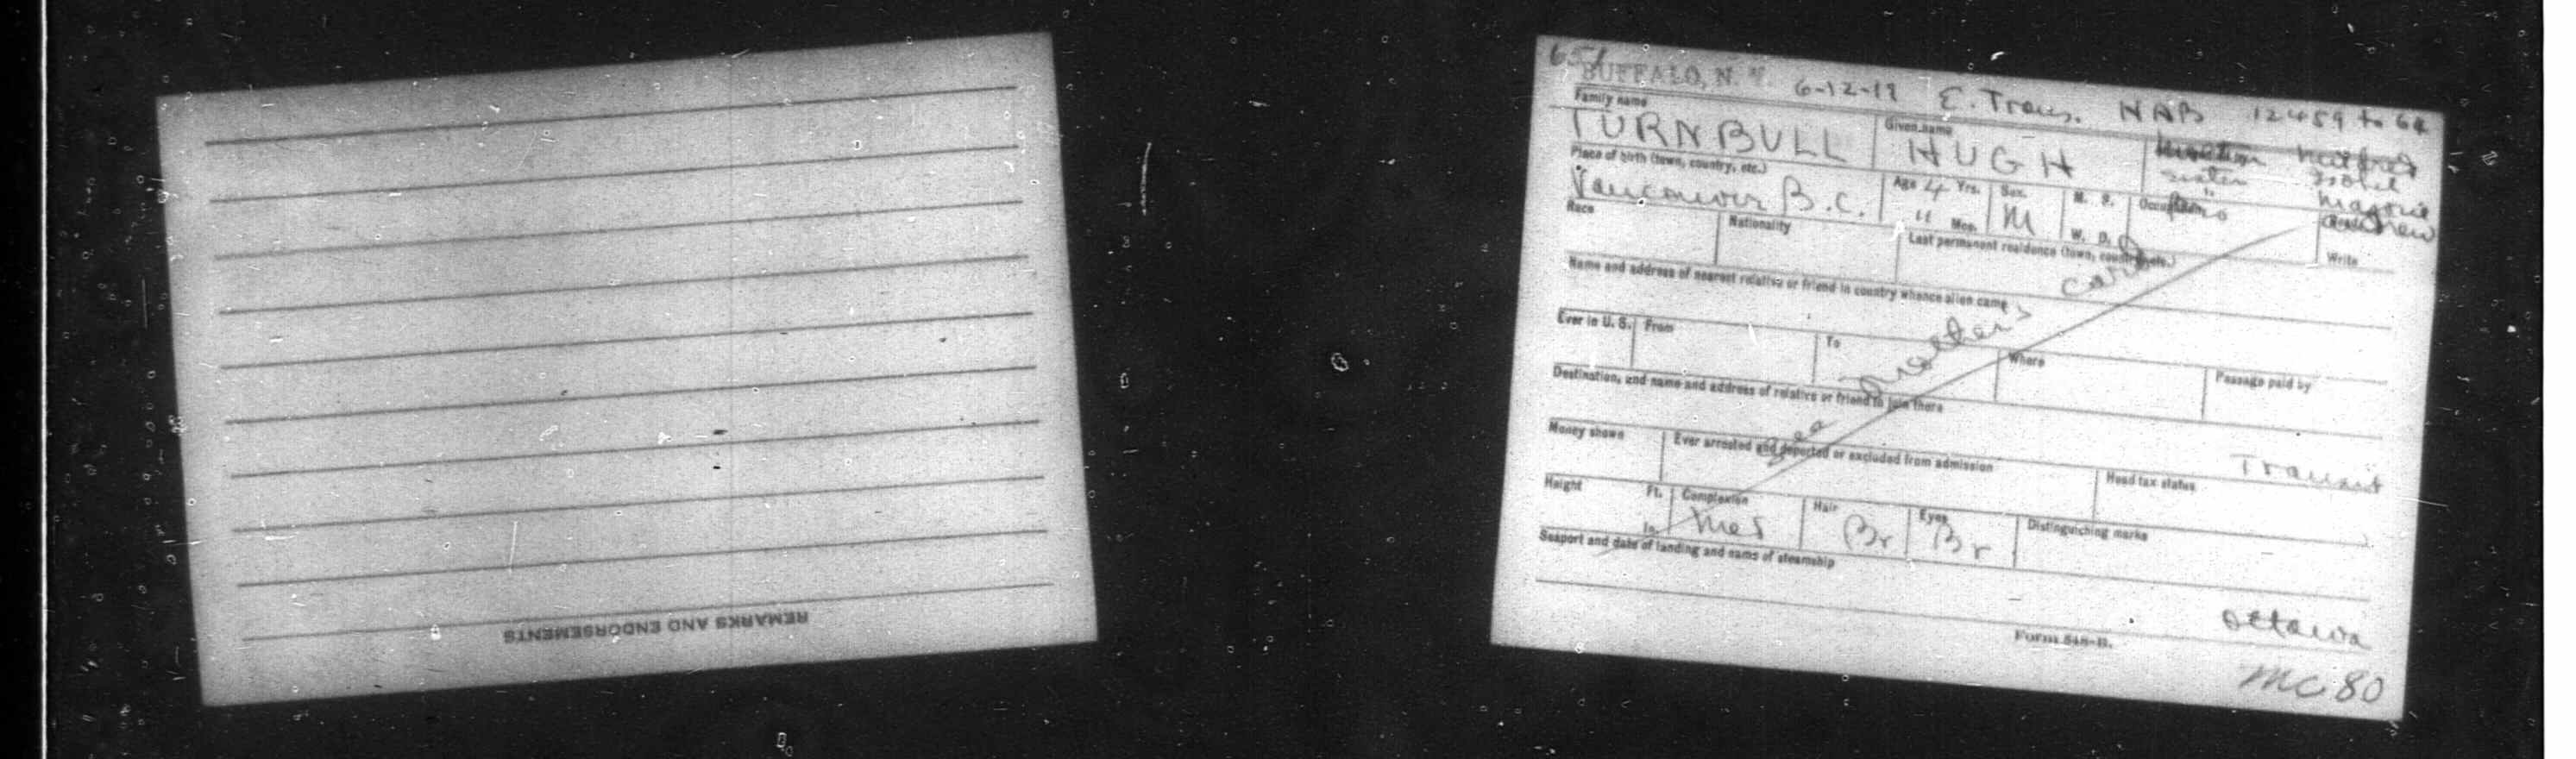 REMARKS AND ENDORSEMENTS
BUFFALO, N. Y. 6-12-19 E. Trans. NAB 12459 to 64
Family name
TURNBULL
Given name
HUGH
sister
Place of birth (town, country, etc.)
Vancouver B.C.
Age 4 Yrs.
11 Mos.
Sex
M
M. S.
W. D.
Occupation
Read
Write
Race
Nationality
Last permanent residence (town, country, etc.)
Name and address of nearest relative or friend in country whence alien came
See mother's card
Ever in U. S.
From
To
Where
Passage paid by
Destination, and name and address of relative or friend to join there
Money shown
Ever arrested and deported or excluded from admission
Head tax status
Transit
Height
Ft.
In.
Complexion
Med
Hair
Br
Eyes
Br
Distinguishing marks
Seaport and date of landing and name of steamship
Ottawa
Form 548-B.
MC 80